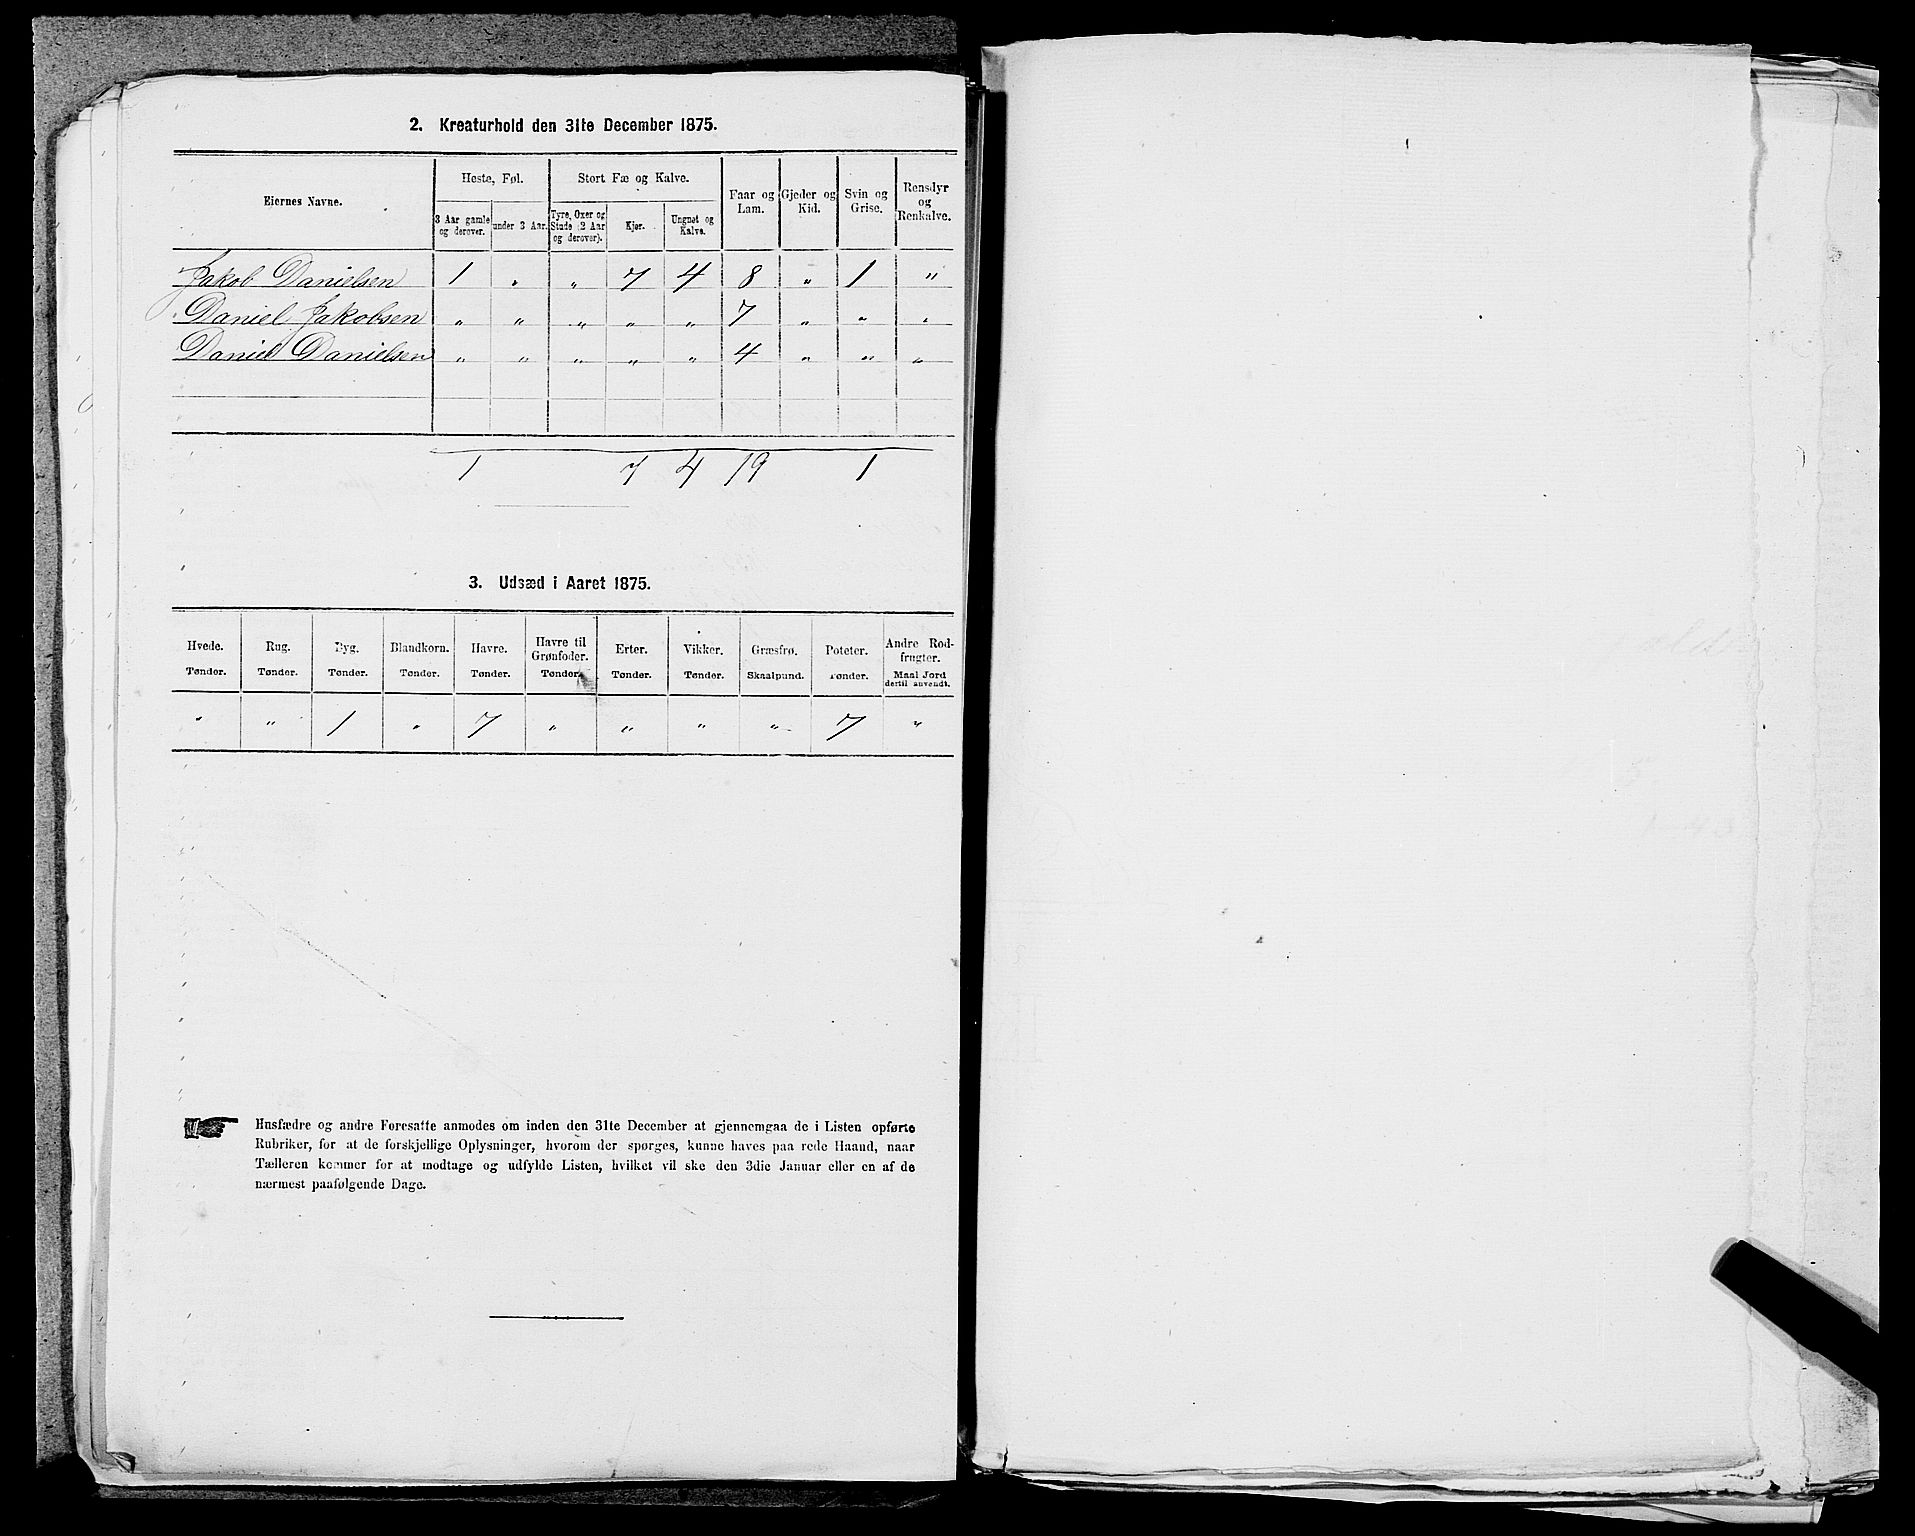 2. Kreaturhold den 31te December 1875.
Eiernes Navne. | Heste, Føl. | Stort Fæ og Kalve. | Faar og Lam. | Gjeder og Kid. | Svin og Grise. | Rensdyr og Renkalve.
3 Aar gamle og derover. | under 3 Aar. | Tyre, Oxer og Stude (2 Aar og derover). | Kjør. | Ungnøt og Kalve.
Jakob Danielsen 1 " " 7 4 8 " 1 "
Daniel Jakobsen " " " " " 7 " " "
Daniel Danielsen " " " " " 4 " " "
1 7 4 19 1
3. Udsæd i Aaret 1875.
Hvede. | Rug. | Byg. | Blandkorn. | Havre. | Havre til Grønfoder. | Erter. | Vikker. | Græsfrø. | Poteter. | Andre Rodfrugter.
Tønder. | Tønder. | Tønder. | Tønder. | Tønder. | Tønder. | Tønder. | Tønder. | Skaalpund. | Tønder. | Maal Jord dertil anvendt.
" " 1 " 7 " " " " 7 "
Husfædre og andre Foresatte anmodes om inden den 31te December at gjennemgaa de i Listen opførte
Rubriker, for at de forskjellige Oplysninger, hvorom der spørges, kunne haves paa rede Haand, naar
Tælleren kommer for at modtage og udfylde Listen, hvilket vil ske den 3die Januar eller en af de
nærmest paafølgende Dage.